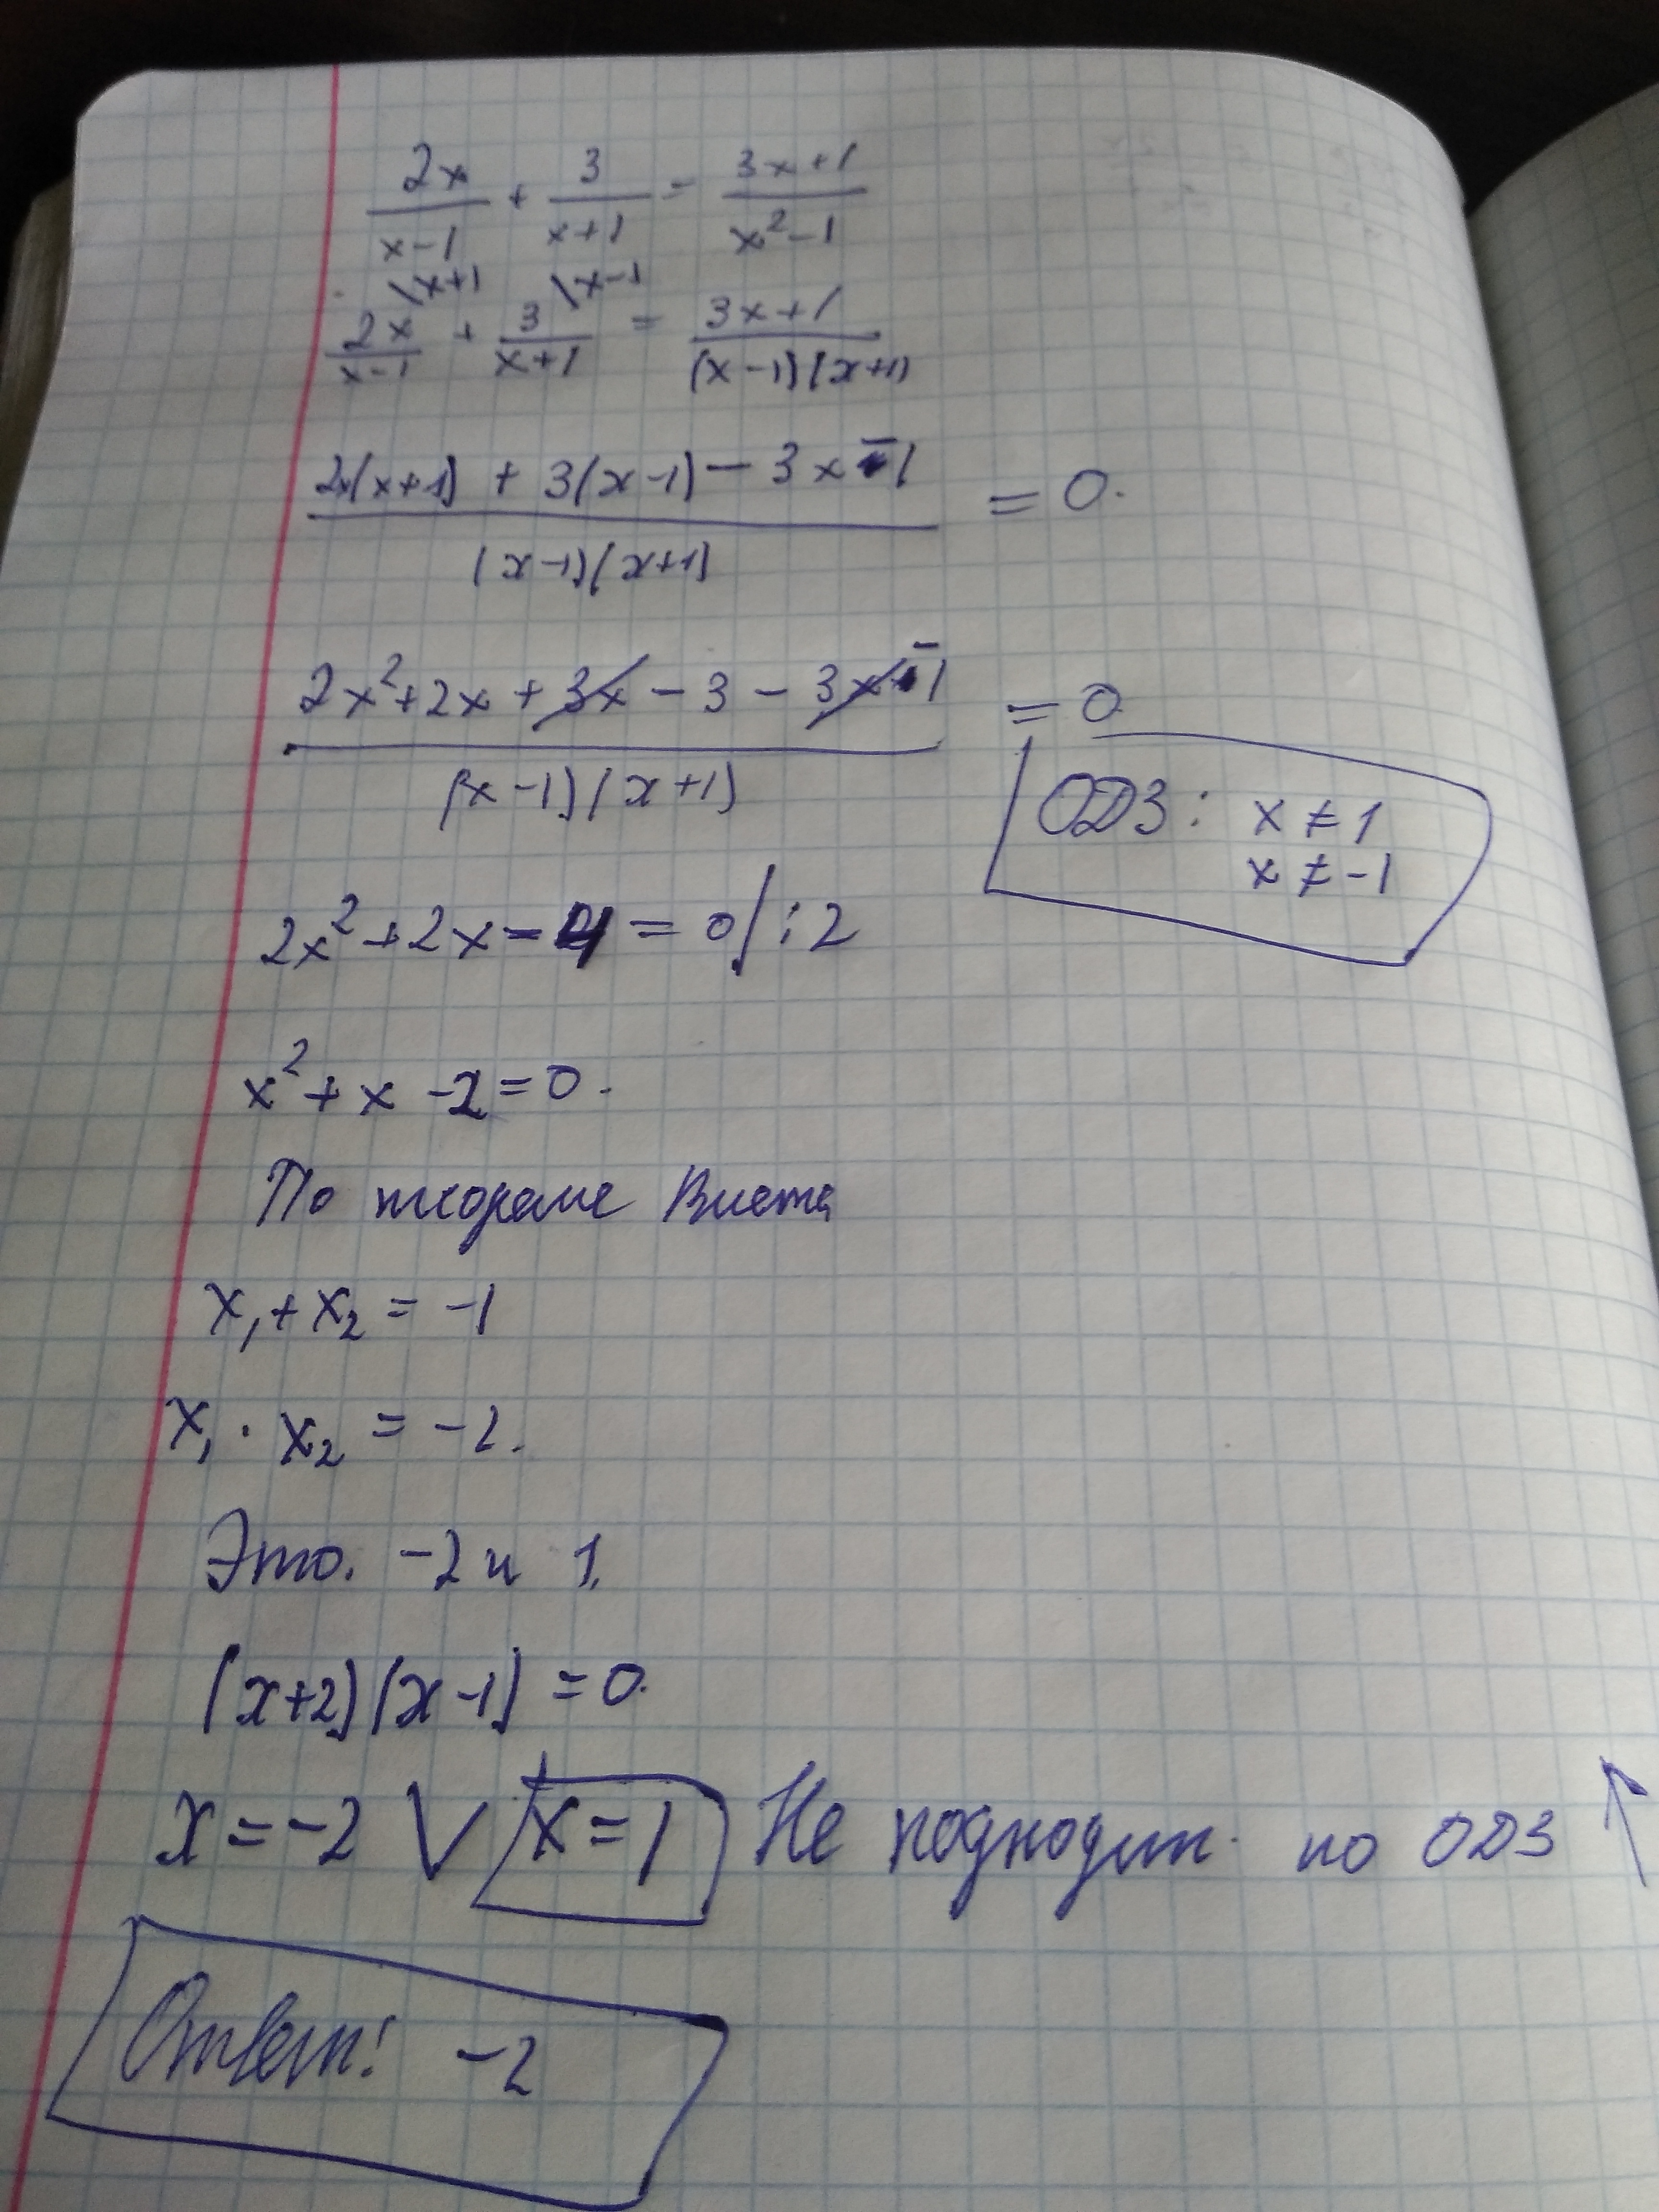 2x/(x-1) + 3/(x+1) = (3x+1)/(x²-1)
2x/(x-1) \x+1 + 3/(x+1) \x-1 = (3x+1)/((x-1)(x+1))
(2x(x+1) + 3(x-1) - 3x - 1)/((x-1)(x+1)) = 0.
(2x²+2x + 3x - 3 - 3x - 1)/((x-1)(x+1)) = 0
ОДЗ: x ≠ 1
x ≠ -1
2x²+2x-4 = 0 | :2
x²+x-2=0.
По теореме Виета
x₁+x₂ = -1
x₁·x₂ = -2.
Это. -2 и 1.
(x+2)(x-1)=0.
x=-2 V x=1 Не подходит по ОДЗ ↑
Ответ: -2